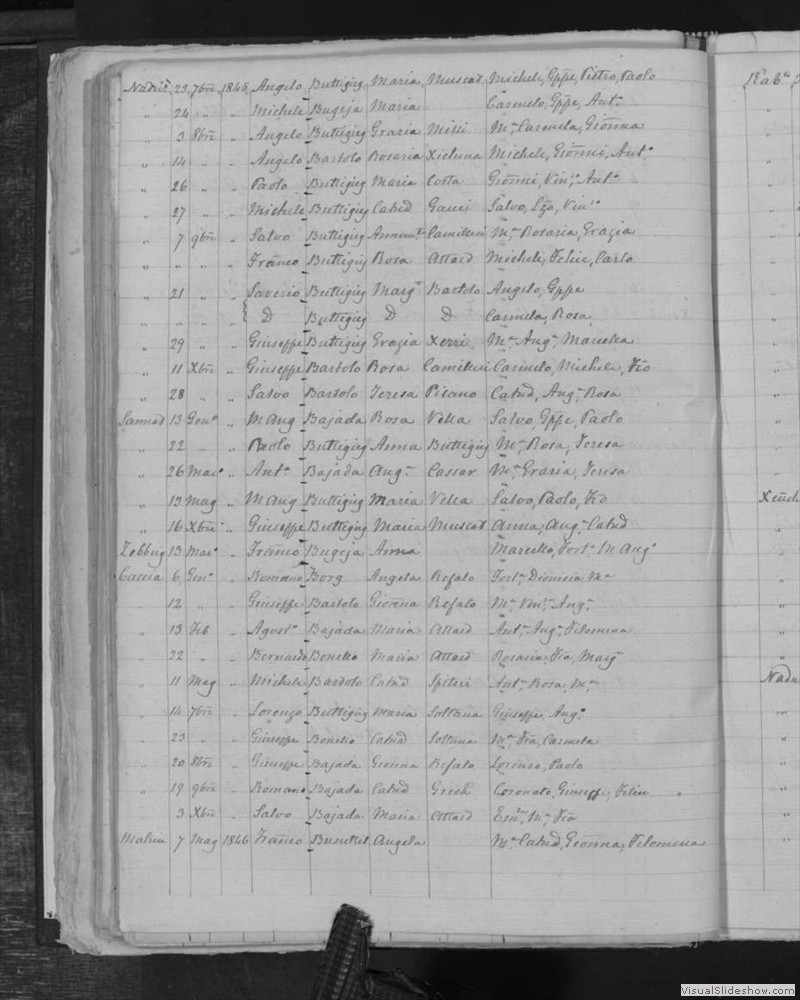 Nadur 23 7bre 1845 Angelo Buttigieg Maria Muscat Michele, Gppe, Pietro, Paolo
" 24 " " Michele Bugeja Maria Carmelo, Gppe, Ant.o
" 3 8bre " Angelo Buttigieg Grazia Missi M.a Carmela, Gioñna
" 14 " " Angelo Bartolo Rosaria Xicluna Michele, Gioñni, Ant.o
" 26 " " Paolo Buttigieg Maria Costa Gioñni, Vin.o Ant.o
" 27 " " Michele Buttigieg Catnd Gauci Salvo, Vin.o
" 7 9bre " Salvo Buttigieg Camilleri M.a Rosaria, Grazia
" " " " Franco Buttigieg Rosa Attard Michele, Felice, Carlo
" 21 " " Saverio Buttigieg Marg.a Bartolo Angelo, Gppe
" " " { D Buttigieg D D Carmela, Rosa
" 29 " " Giuseppe Buttigieg Grazia Xerri M.a Ang.a Marcella
" 11 Xbre " Giuseppe Bartolo Rosa Camilleri Carmelo, Michele, Fco
" 28 " " Salvo Bartolo Teresa Pisano Catnd, Ang.a Rosa
Sannat 13 Gen.o " M Ang Bajada Rosa Vella Salvo, Gppe, Paolo
" 22 " " Paolo Buttigieg Anna Buttigieg M.a Rosa, Teresa
" 26 Mar.o " Ant.o Bajada Aug.a Cassar M.a Grazia, Teresa
" 19 Mag " M Ang Buttigieg Maria Vella Salvo, Paolo, Fco
" 16 Xbre " Giuseppe Buttigieg Maria Muscat Anna, Aug.a Catnd
Zebbug 13 Mar.o " Franco Bugeja Anna Marcello, Fort.o M Ang.o
Caccia 6 Gen.o " Romano Borg Angela Refalo Fort.a Dionisia, M.a
" 12 " " Giuseppe Bartolo Gioñna Refalo M.a Vin.a Ang.a
" 13 Feb " Agost.o Bajada Maria Attard Ant.a Ang.a Filomena
" 22 " " Bernardo Bonello Maria Attard Rosaria, Fca, Marg
" 11 Mag " Michele Bardolo Catnd Spiteri Ant.a Rosa, M.a
" 14 7bre " Lorenzo Buttigieg Maria Soltana Giuseppe, Aug.o
" 23 " " Giuseppe Bonello Catnd Soltana M.a Fca, Carmela
" 20 8bre " Giuseppe Bajada Gionna Refalo Lorenzo, Paolo
" 19 9bre " Romano Bajada Catnd Grech Coronato, Giuseppe, Felice
" 3 Xbre " Salvo Bajada Maria Attard M.a Fca
7 Mag 1846 Franco Busuttil Angela M.a Catnd, Gioñna, Filomena
Rab.o
Nadu
VisualSlideshow.com